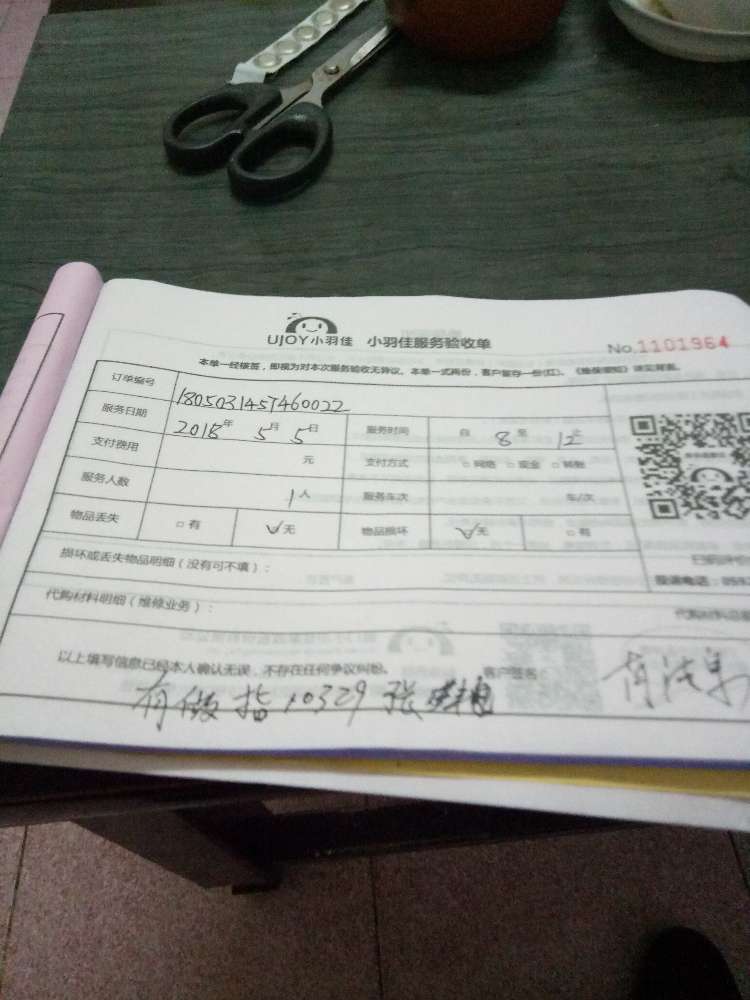 UJOY小羽佳 小羽佳服务验收单 No.1101964
本单一经核签，即视为对本次服务验收无异议。本单一式两份，客户留存一份(红)。《维保须知》详见背面。
订单编号 1805031457460022
服务日期 2018年 5月 5日 服务时间 自 8 至 12 止
支付费用 元 支付方式 □网络 □现金 □转账
服务人数 1人 服务车次 车/次
物品丢失 □有 ☑无 物品损坏 ☑无 □有
损坏或丢失物品明细（没有可不填）：
投诉电话：059
代购材料明细（维修业务）：
代购材料总
以上填写信息已经本人确认无误，不存在任何争议纠纷。 客户签名：
有做指 10329 张